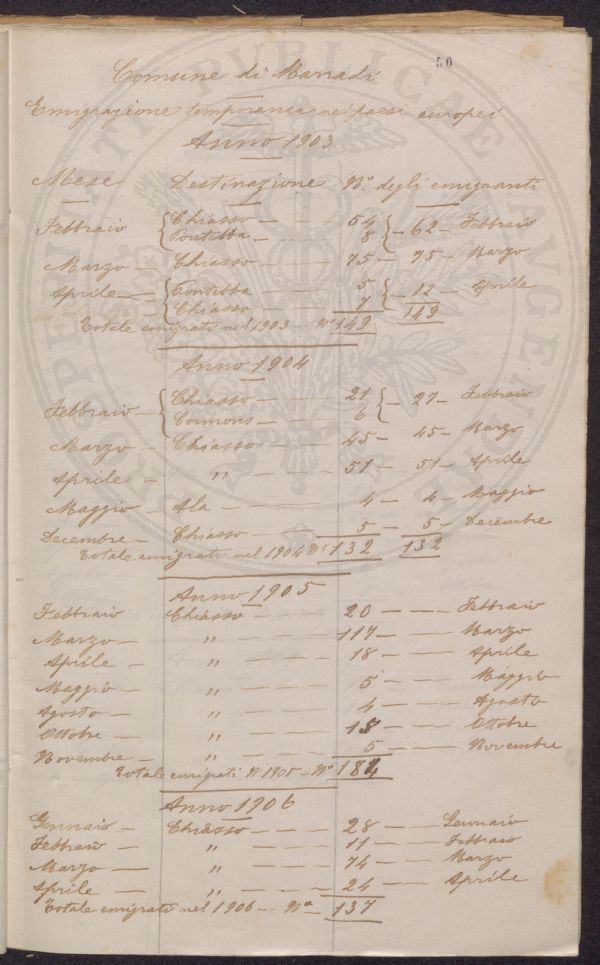 50
Comune di Marradi
Emigrazione temporanea nei paesi europei
Anno 1903
Mese Destinazione N.º degli emigranti
Febbraio { Chiasso — 54 } — 62 — Febbraio
Pontebba — 8
Marzo — Chiasso — 75 — 75 — Marzo
Aprile — { Pontebba — 5 } — 12 — Aprile
Chiasso — 7
Totale emigrati nel 1903 — Nº 149 149
Anno 1904
Febbraio — { Chiasso — 21 } — 27 — Febbraio
Cormons — 6
Marzo — Chiasso — 45 — 45 — Marzo
Aprile — " — 51 — 51 — Aprile
Maggio — Ala — 4 — 4 — Maggio
Decembre — Chiasso — 5 — 5 — Decembre
Totale emigrati nel 1904 Nº 132 132
Anno 1905
Febbraio Chiasso — 20 — Febbraio
Marzo — " — 117 — Marzo
Aprile — " — 18 — Aprile
Maggio — " — 5 — Maggio
Agosto — " — 4 — Agosto
Ottobre — " — 15 — Ottobre
Novembre — " — 5 — Novembre
Totale emigrati N. 1905 — Nº 184
Anno 1906
Gennaio — Chiasso — 28 — Gennaio
Febbraio — " — 11 — Febbraio
Marzo — " — 74 — Marzo
Aprile — " — 24 — Aprile
Totale emigrati nel 1906 — Nº — 137
PROSPERITATI PVBLICAE AVGENDAE